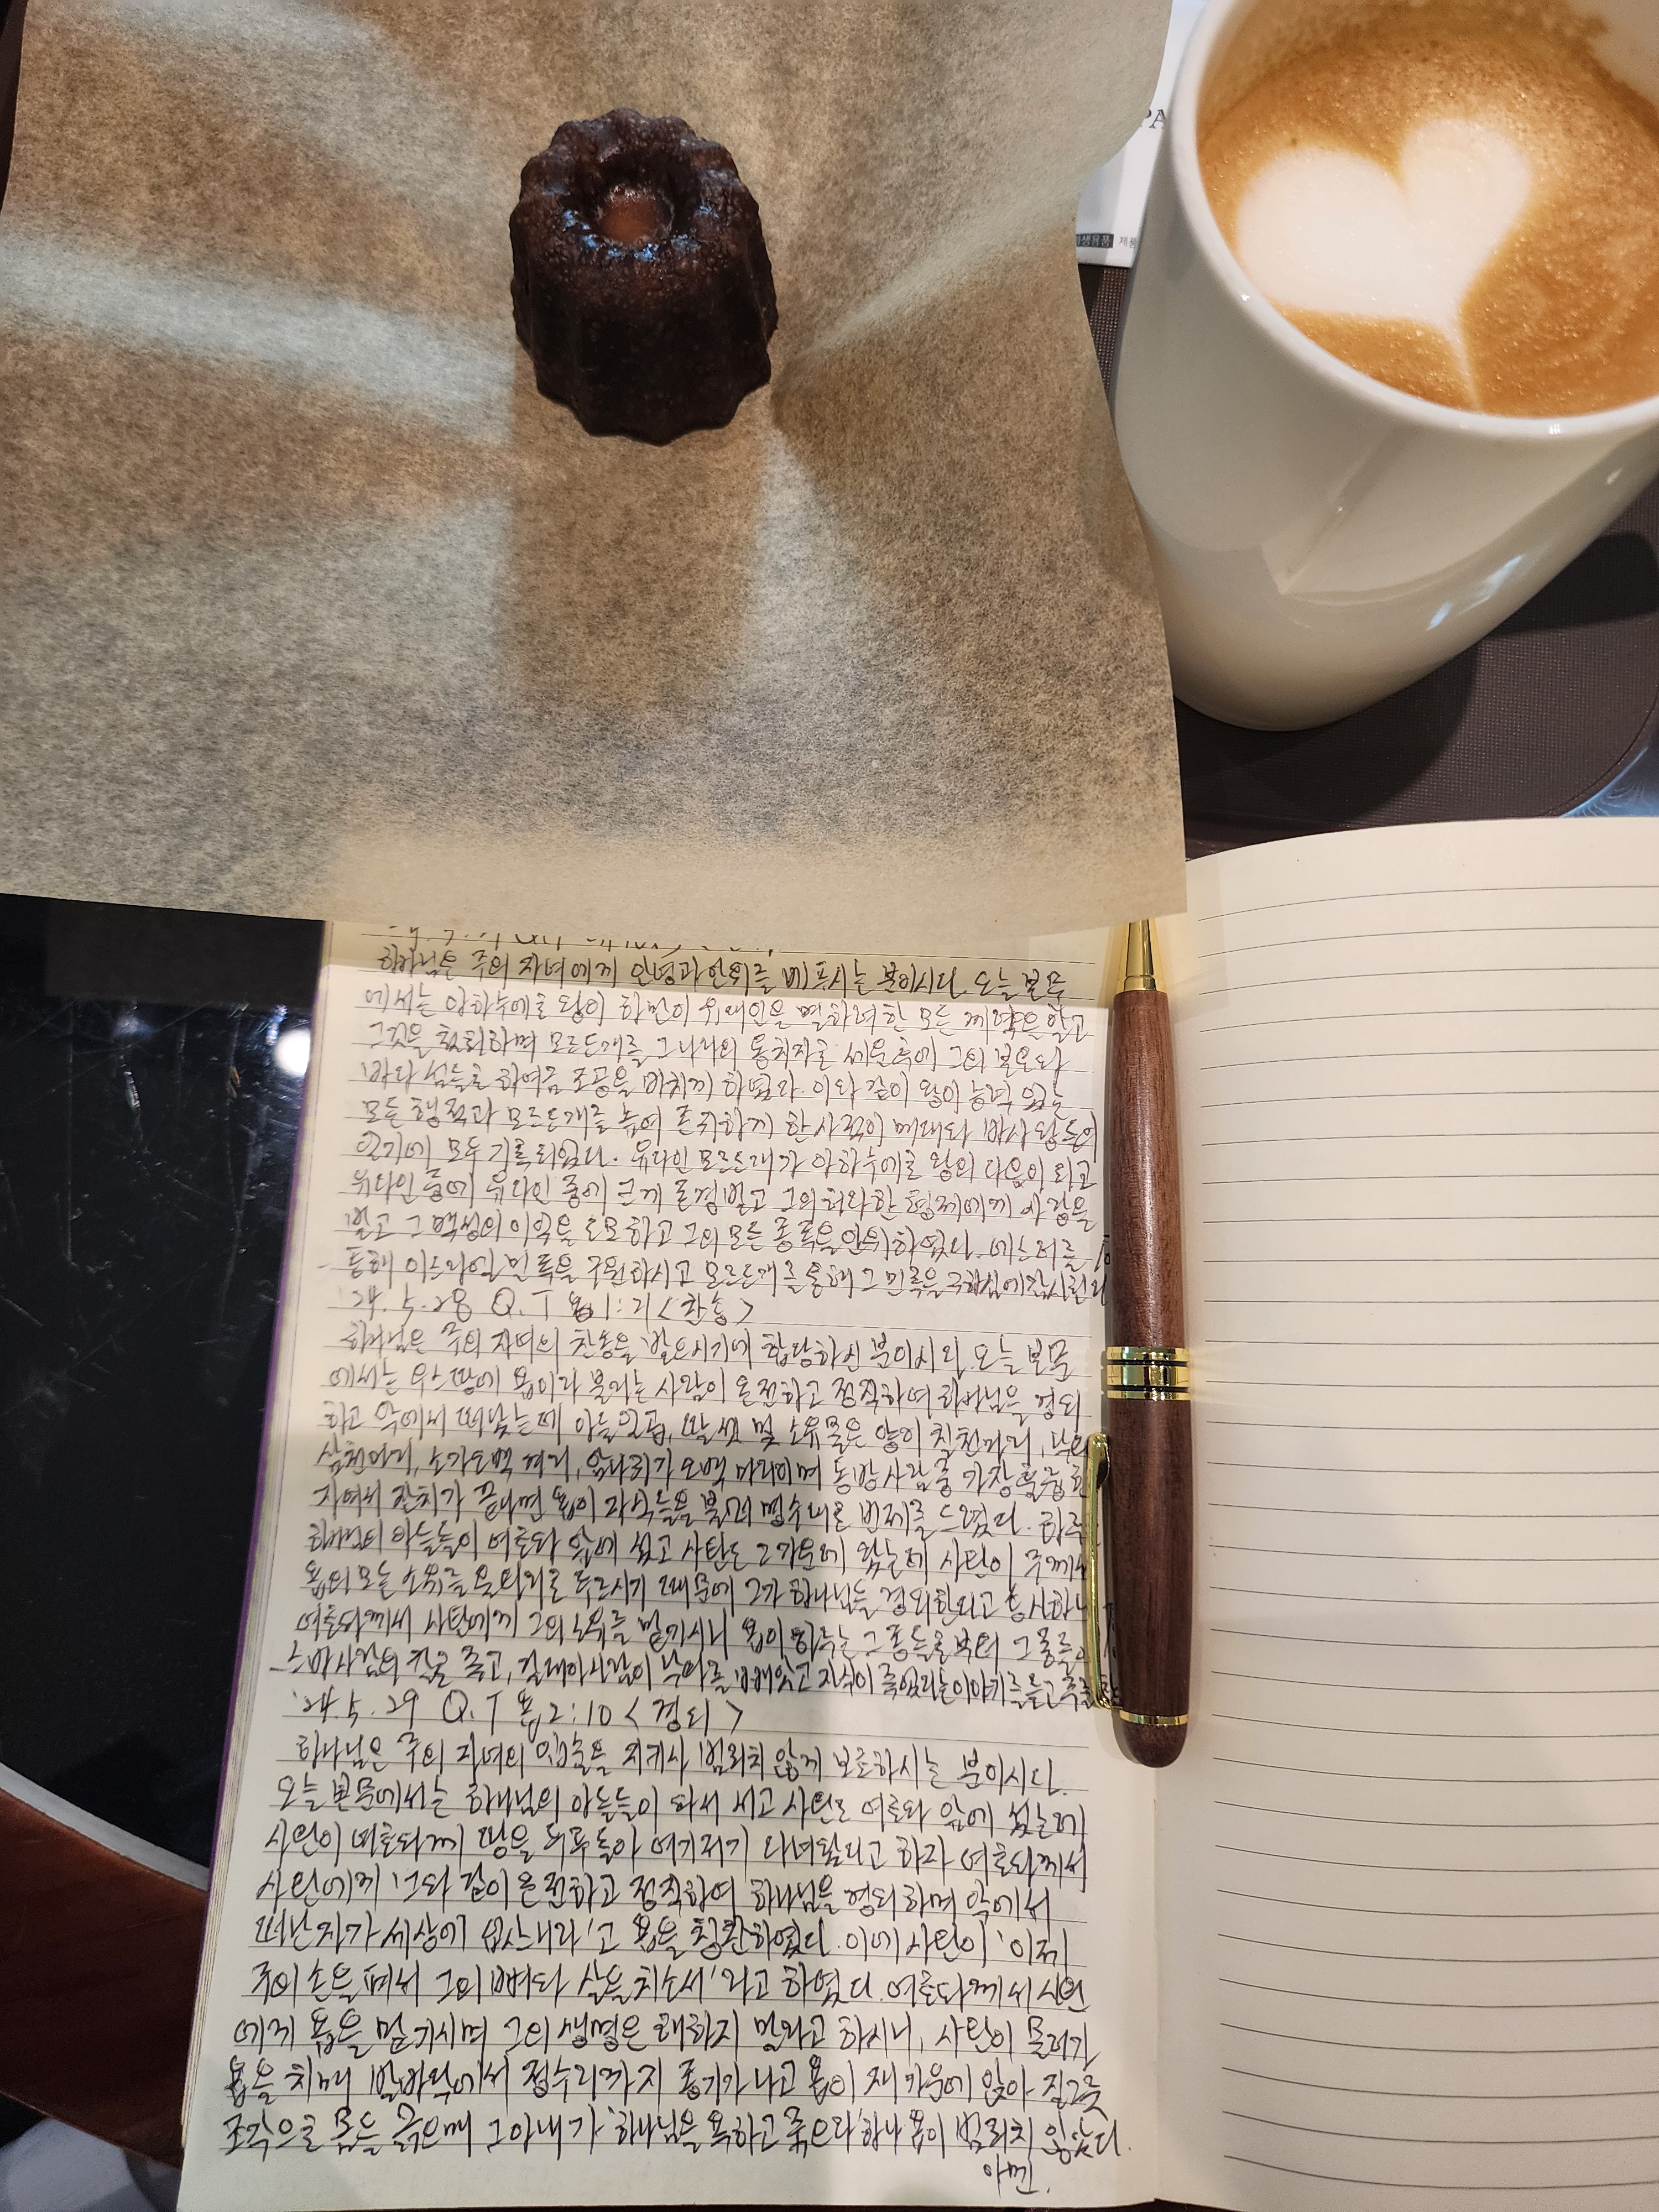 PA
생유품 제품
하나님은 주의 자녀에게 안녕과 안위를 베푸시는 분이시다. 오늘 본문
에서는 아하수에로 왕이 하만이 유대인을 멸하려한 모든 계략을 알고
그것을 철회하며 모르드개를 그 나라의 통치자로 세운 후에 그의 본토와
바다 섬들로 하여금 조공을 바치게 하였다. 이와 같이 왕이 능력 있는
모든 행적과 모르드개를 높여 존귀하게 한 사적이 메대와 바사 왕들의
일기에 모두 기록되었다. 유다인 모르드개가 아하수에로 왕의 다음이 되고
유다인 중에 유다인 중에 크게 존경받고 그의 허다한 형제에게 사랑을
받고 그 백성의 이익을 도모하고 그의 모든 종족을 안위하였다. 에스더를
통해 이스라엘 민족을 구원하시고 모르드개를 통해 그 민족을
'24. 5. 28 Q.T 욥1:21 <찬송>
하나님은 주의 자녀의 찬송을 받으시기에 합당하신 분이시라. 오늘 본문
에서는 우스 땅에 욥이라 불리는 사람이 온전하고 정직하여 하나님을 경외
하고 악에서 떠났는데 아들 일곱, 딸 셋 및 소유물은 양이 칠천마리, 낙타
삼천마리, 소가 오백 겨리, 암나귀가 오백 마리이며 동방사람 중 가장 훌륭한
자여서 잔치가 끝나면 욥이 자식들을 불러 명수대로 번제를 드렸다. 하루
하나님의 아들들이 여호와 앞에 섰고 사탄도 그 가운데 왔는데 사탄이 주께서
욥의 모든 소유를 울타리로 두르시기 때문에 그가 하나님을 경외한다고 참소하니
여호와께서 사탄에게 그의 소유를 맡기시니 욥이 하루는 그 종들로부터
스바 사람의 칼로 죽고, 갈대아 사람이 낙타를 빼앗고 자식이 죽었다는 이야기를 듣고
'24. 5. 29 Q.T 욥2:10 <경외>
하나님은 주의 자녀의 입술을 지키사 범죄치 않게 보호하시는 분이시다.
오늘 본문에서는 하나님의 아들들이 와서 서고 사탄도 여호와 앞에 섰는데
사탄이 여호와께 땅을 두루 돌아 여기저기 다녀왔다고 하자 여호와께서
사탄에게 '그와 같이 온전하고 정직하여 하나님을 경외하며 악에서
떠난자가 세상에 없느니라'고 욥을 칭찬하였다. 이에 사탄이 '이제
주의 손을 펴서 그의 뼈와 살을 치소서'라고 하였다. 여호와께서 사탄
에게 욥을 맡기시며 그의 생명은 해하지 말라고 하시니, 사탄이 물러가
욥을 치매 발바닥에서 정수리까지 종기가 나고 욥이 재 가운데 앉아 질그릇
조각으로 몸을 긁을때 그 아내가 '하나님을 욕하고 죽으라' 하나 욥이 범죄치 않았다.
아멘.